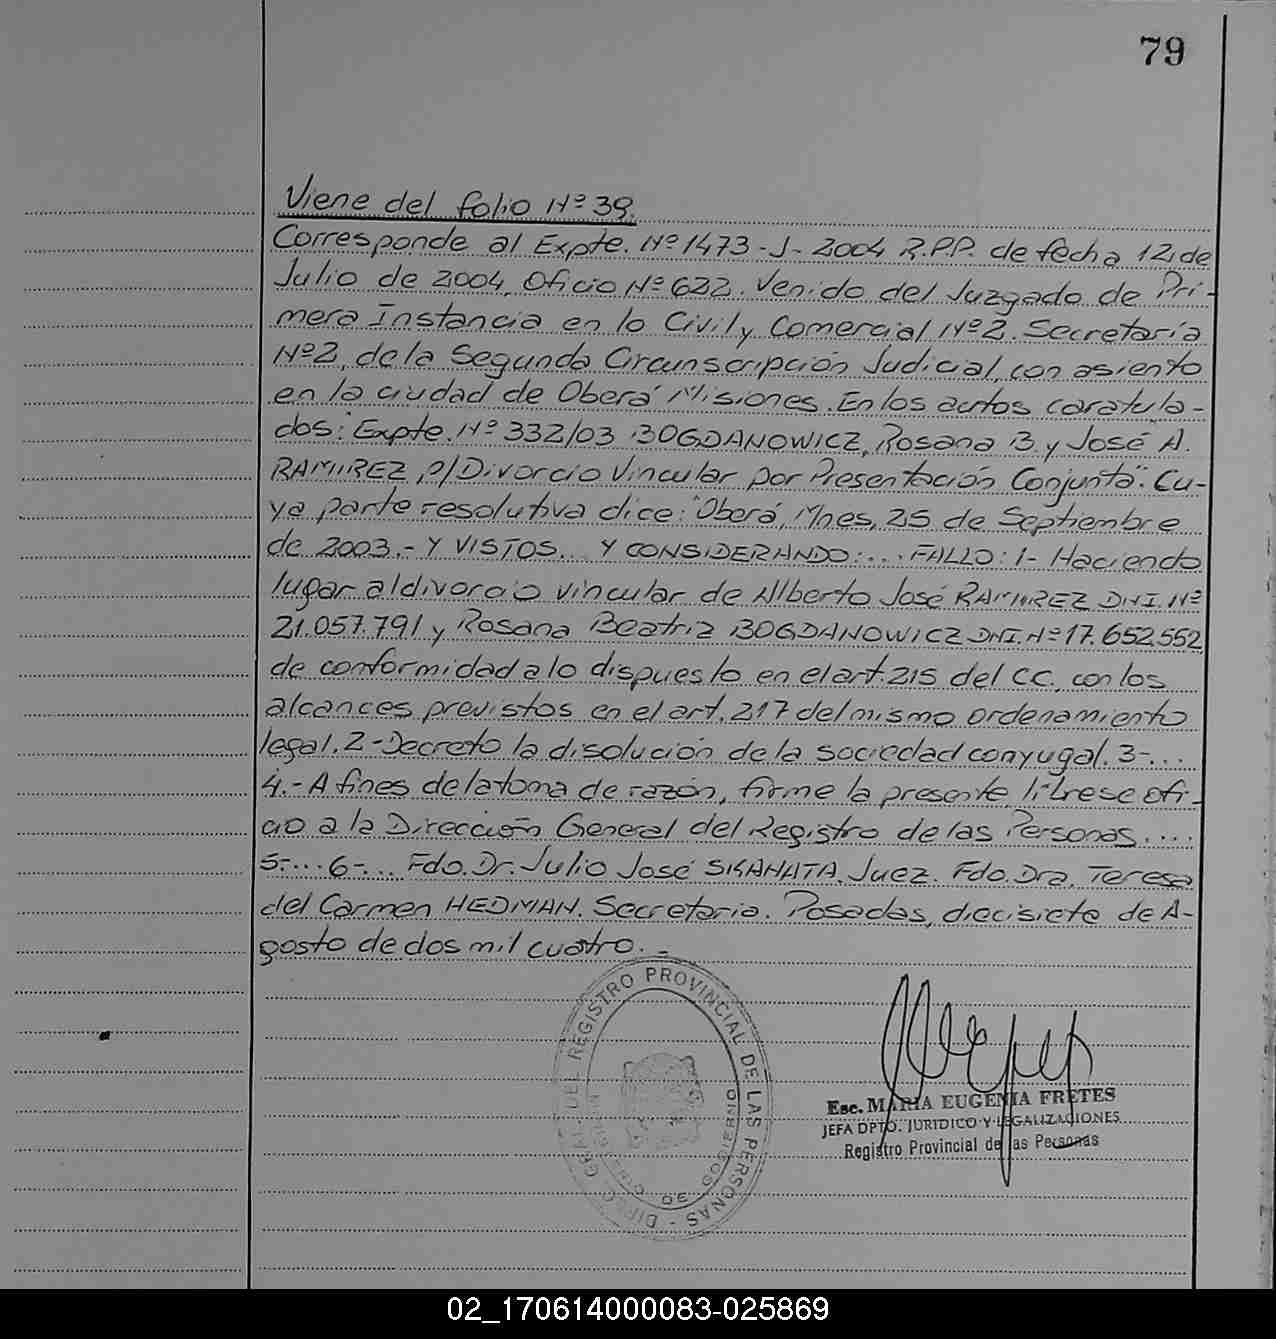 79
Viene del folio Nº 39.
Corresponde al Expte. Nº 1473-J-2004 R.P.P. de fecha 12 de
Julio de 2004, Oficio Nº 622. Venido del Juzgado de Pri-
mera Instancia en lo Civil y Comercial Nº 2. Secretaría
Nº 2, de la Segunda Circunscripción Judicial, con asiento
en la ciudad de Oberá Misiones. En los autos caratula-
dos: Expte. Nº 332/03 BOGDANOWICZ, Rosana B. y José A.
RAMIREZ, p/Divorcio Vincular por Presentación Conjunta". Cu-
ya parte resolutiva dice: "Oberá, Mnes, 25 de Septiembre
de 2003.- Y VISTOS... Y CONSIDERANDO:... FALLO: 1- Haciendo
lugar al divorcio vincular de Alberto José RAMIREZ DNI. Nº
21.057.791 y Rosana Beatriz BOGDANOWICZ DNI. Nº 17.652.552
de conformidad a lo dispuesto en el art. 215 del C.C. con los
alcances previstos en el art. 217 del mismo ordenamiento
legal. 2-Decreto la disolución de la sociedad conyugal. 3-...
4.- A fines de la toma de razón, firme la presente líbrese ofi-
cio a la Dirección General del Registro de las Personas....
5-....6-... Fdo. Dr. Julio José SKANATA. Juez. Fdo. Dra. Teresa
del Carmen HEDMAN. Secretaria. Posadas, diecisiete de A-
gosto de dos mil cuatro. -
DEL REGISTRO PROVINCIAL DE LAS PERSONAS -
GOBIERNO
Esc. MARIA EUGENIA FRETES
JEFA DPTO. JURIDICO Y LEGALIZACIONES
Registro Provincial de las Personas
02_170614000083-025869